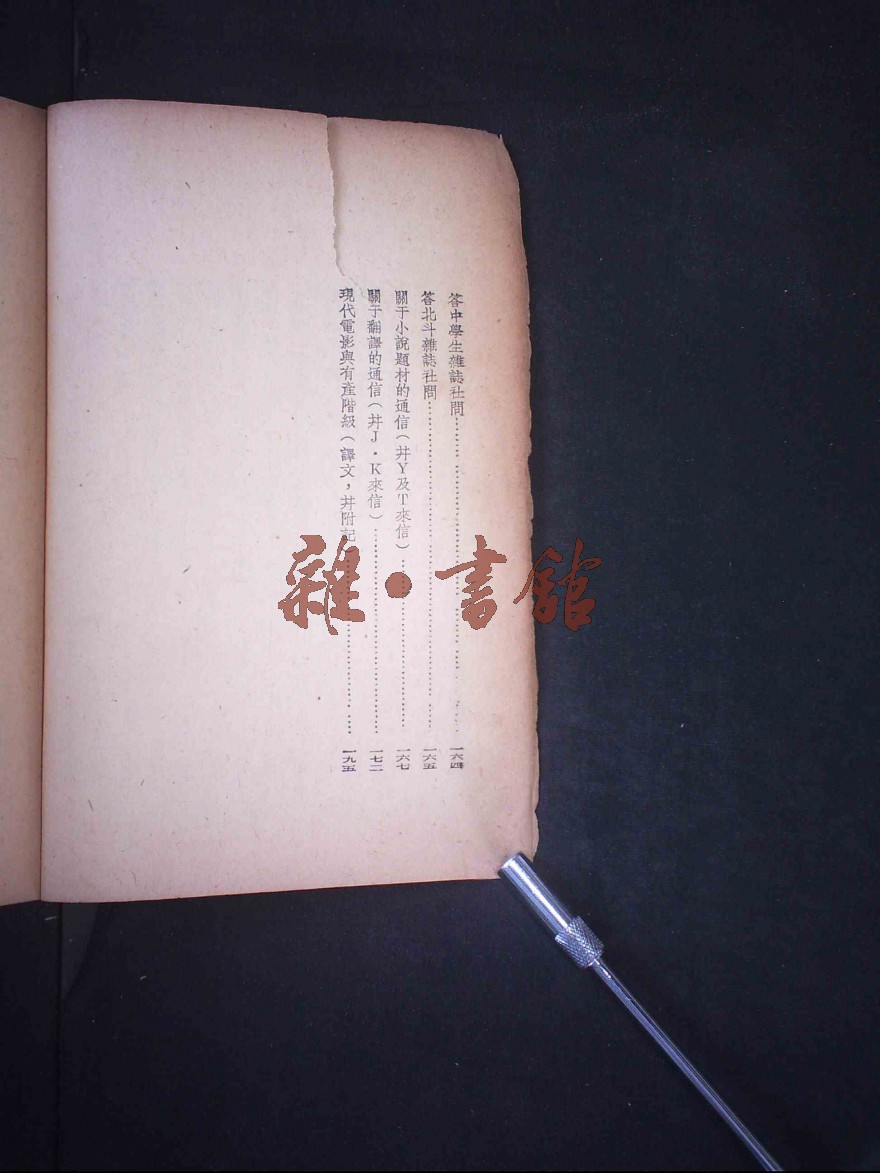 答中學生雜誌社問……一六四
答北斗雜誌社問……一六五
關于小說題材的通信（幷Y及T來信）……一六七
關于翻譯的通信（幷J·K來信）……一七二
現代電影與有產階級（譯文，幷附記……一九五
雜·書館